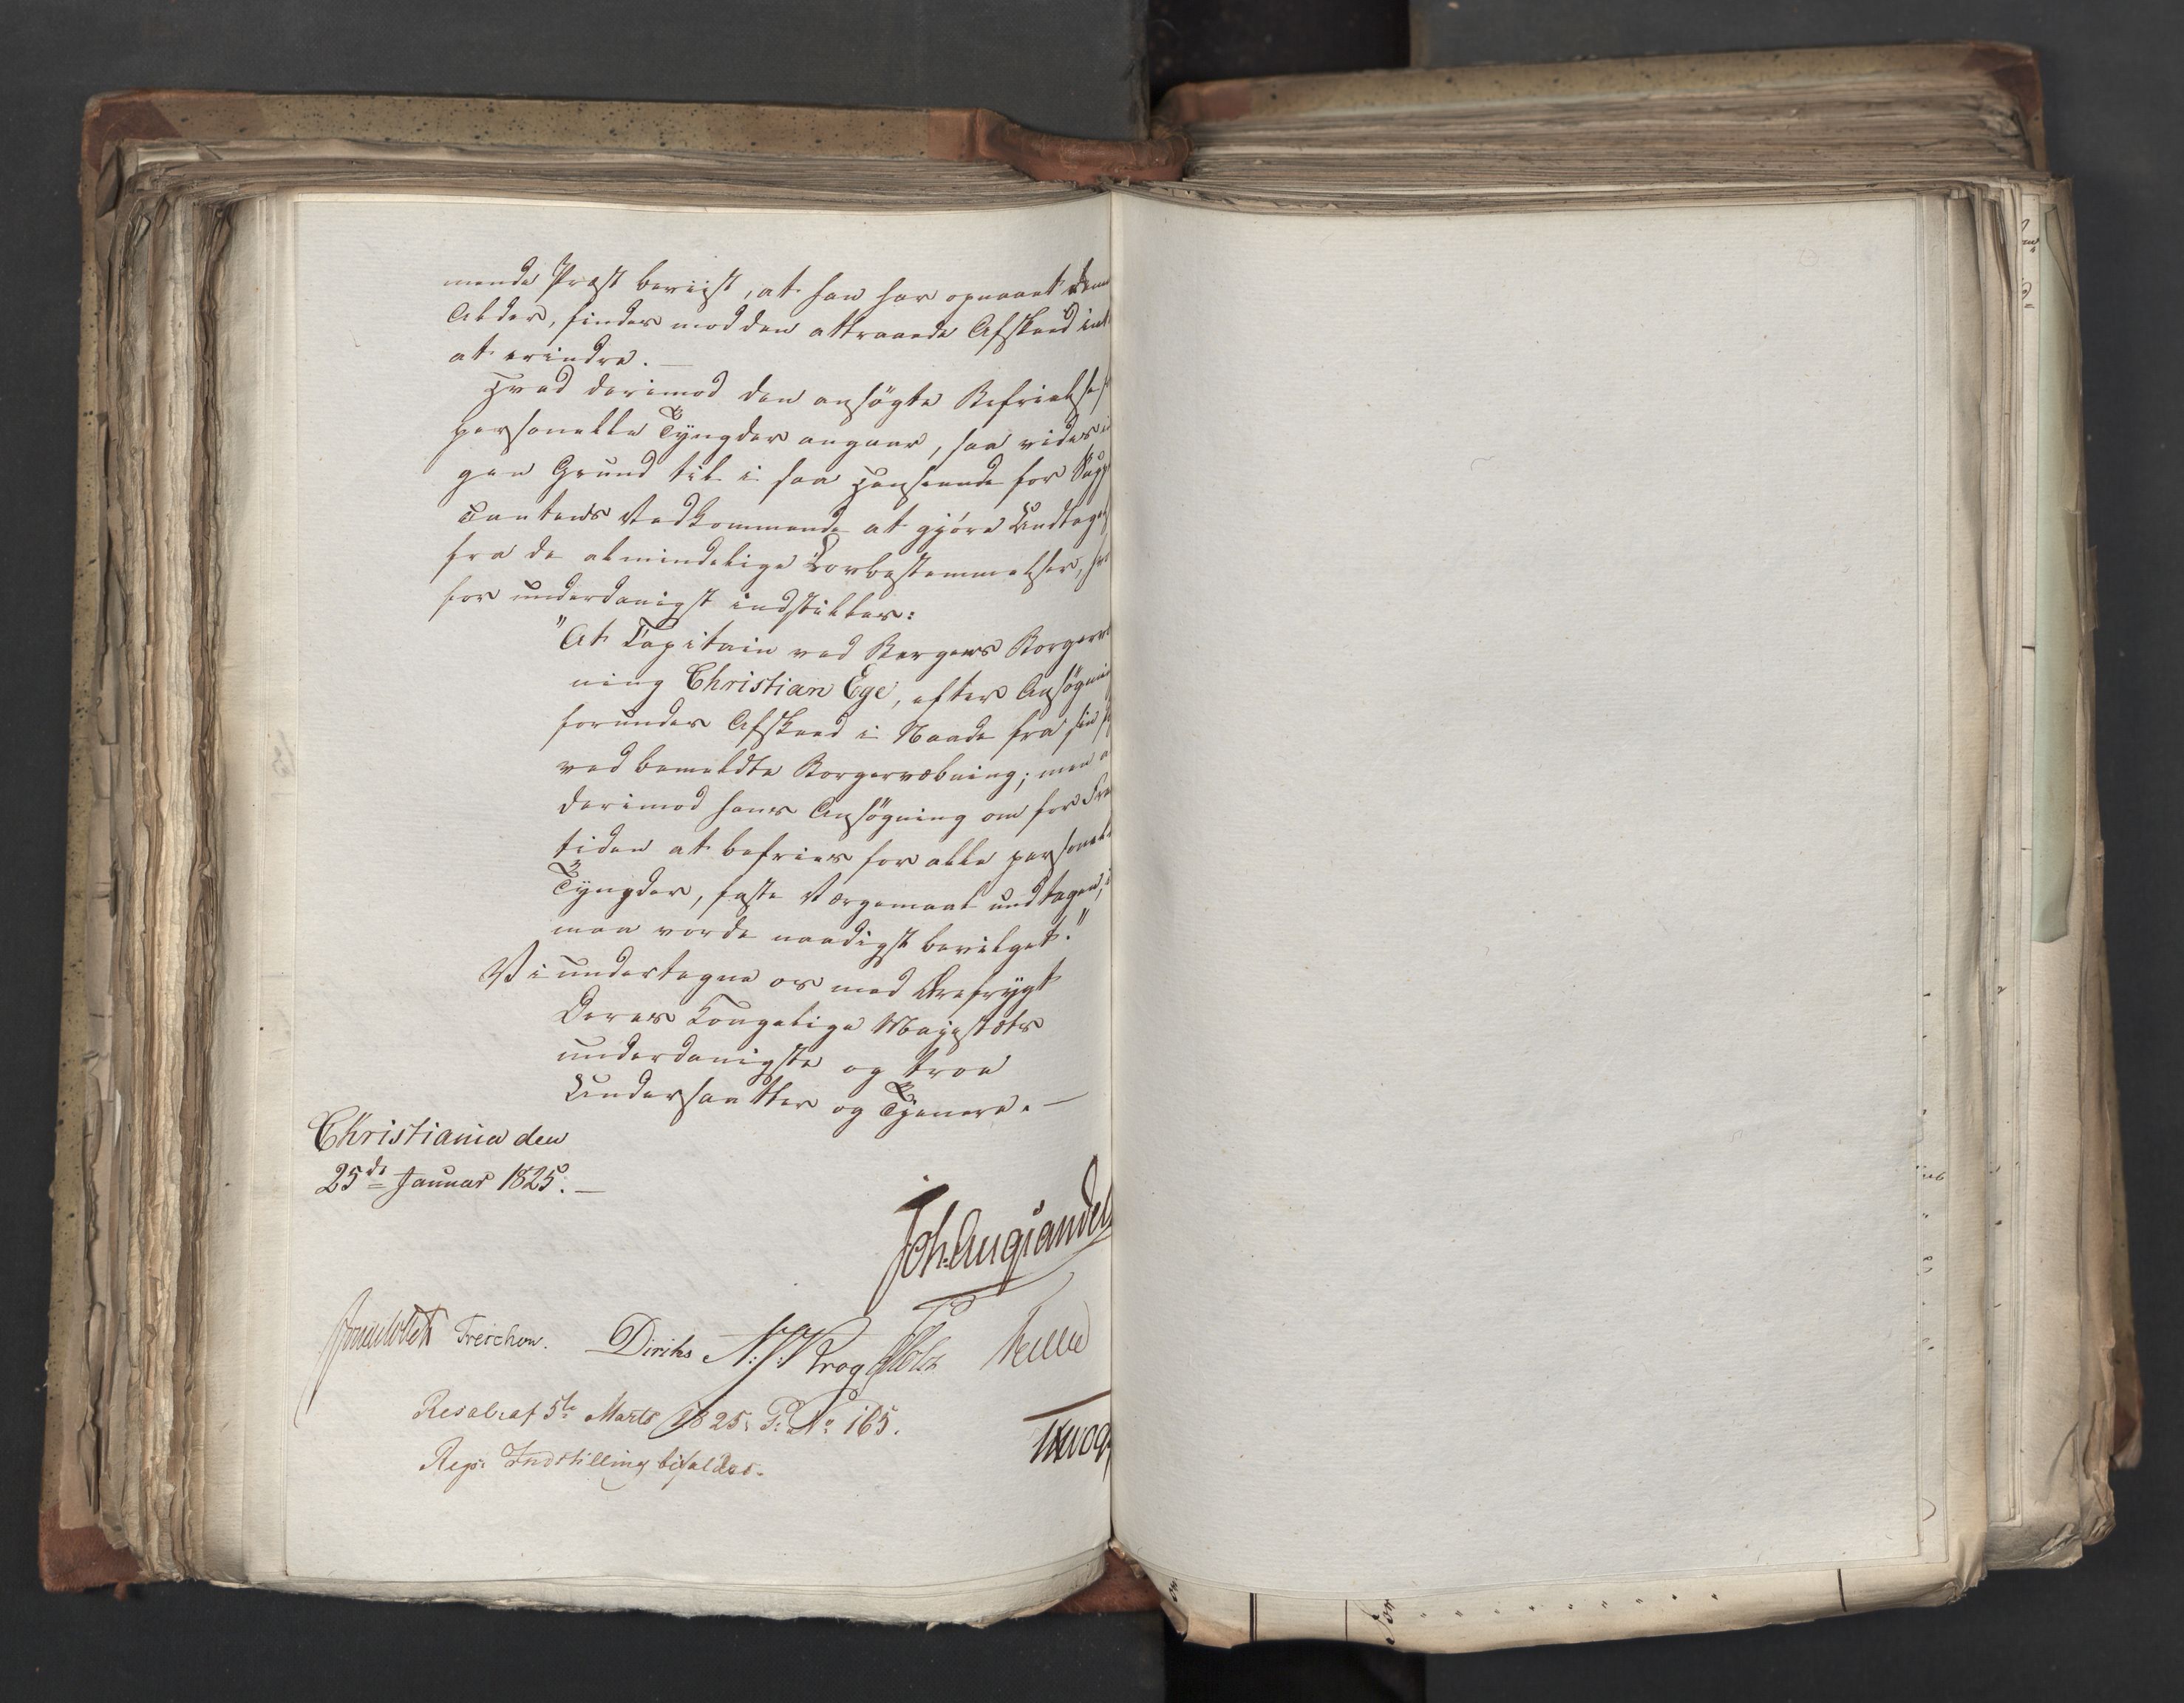 mende Præst beviist, at han har opnaaet denn
Alder, findes mod den attraaede Afskeed int
at erindre. —
Hvad derimod den ansögte Befrielse f
personelle Tyngder angaaer, saa vides in
gen Grund til i saa Henseende for Supp
cantens Vedkommende at gjöre Undtagel
fra de almindelige Lovbestemmelser, hvor
for underdanigst indstilles:
"At Capitain ved Bergens Borgervæ
ning Christian Ege, efter Ansögning
forundes Afskeed i Naade fra sin
ved bemeldte Borgervæbning; men a
derimod hans Ansögning om for Frem
tiden at befries for alle personelle
Tyngder, faste Værgemaal undtagen, i
maa vorde naadigst bevilget."
Vi undertegne os med Ærefrygt
Deres Kongelige Majestæts
underdanigste og troe
Undersaatter og Tjenere. —
Christiania den
25de Januar 1825. —
Joh. Aug. Sandels
Sommerhielm Treschow. Diriks N: J: Krog Holst
Resol: af 5te Marts 1825. P. No 165.
Regs: Indstilling bifaldes.